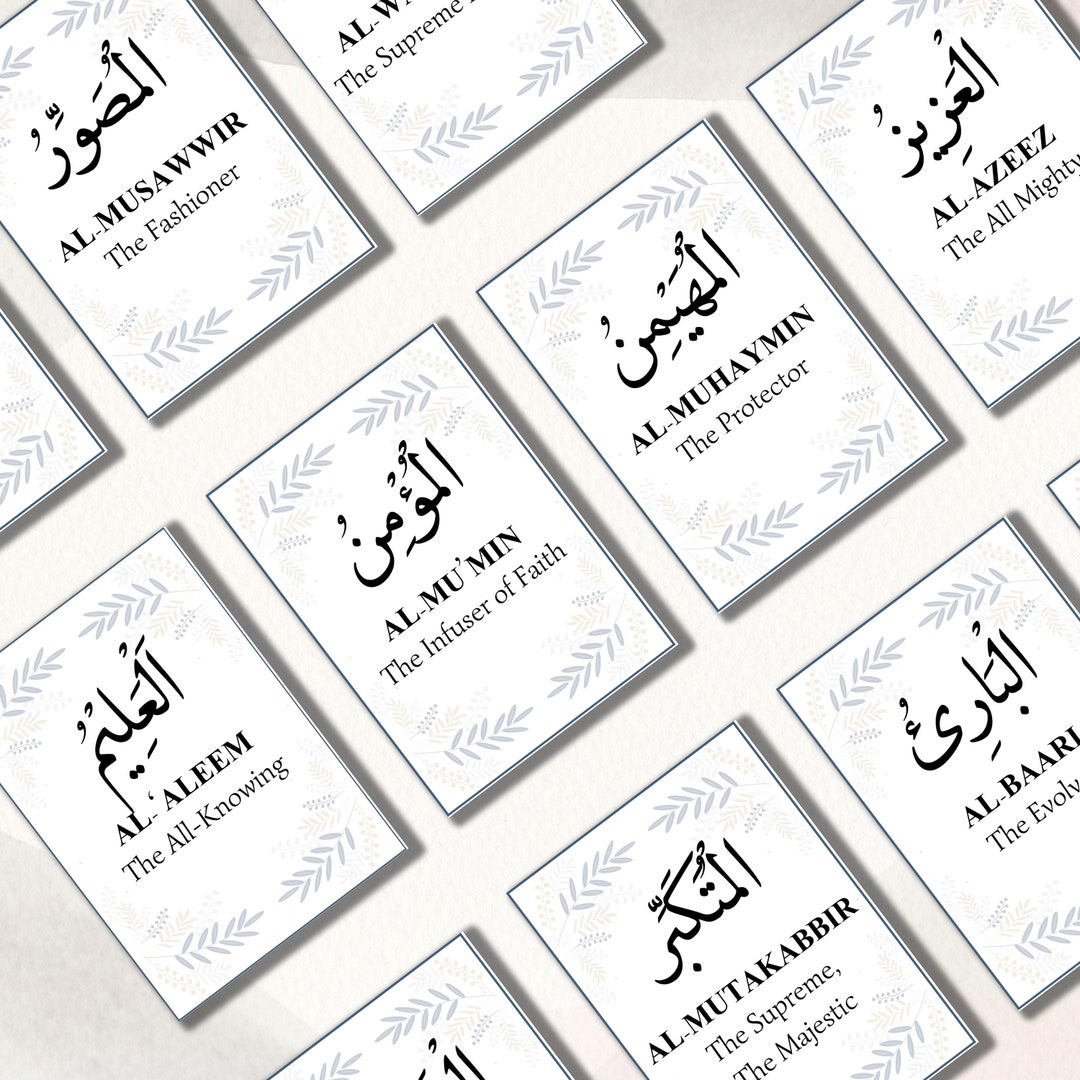 المُصَوِّرُ
AL-MUSAWWIR
The Fashioner
The Supreme
العَزِيزُ
AL-AZEEZ
The All Mighty
المُهَيْمِنُ
AL-MUHAYMIN
The Protector
المُؤْمِنُ
AL-MU'MIN
The Infuser of Faith
اَلْعَلِيْمُ
AL-'ALEEM
The All-Knowing
البَارِئُ
AL-BAARI
The
المُتَكَبِّرُ
AL-MUTAKABBIR
The Supreme,
The Majestic